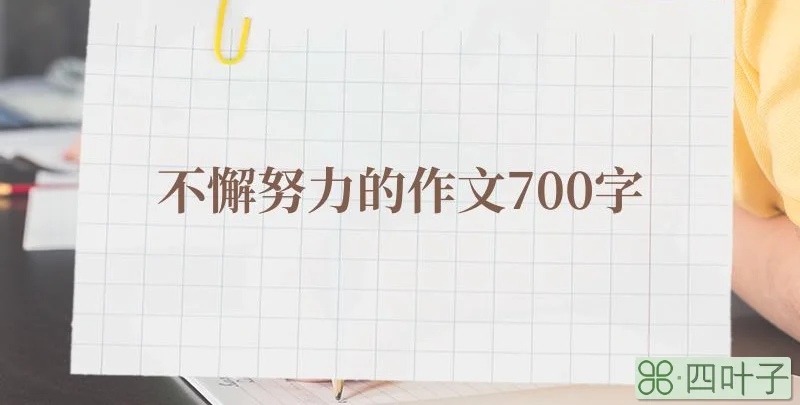 不懈努力的作文700字
四叶子